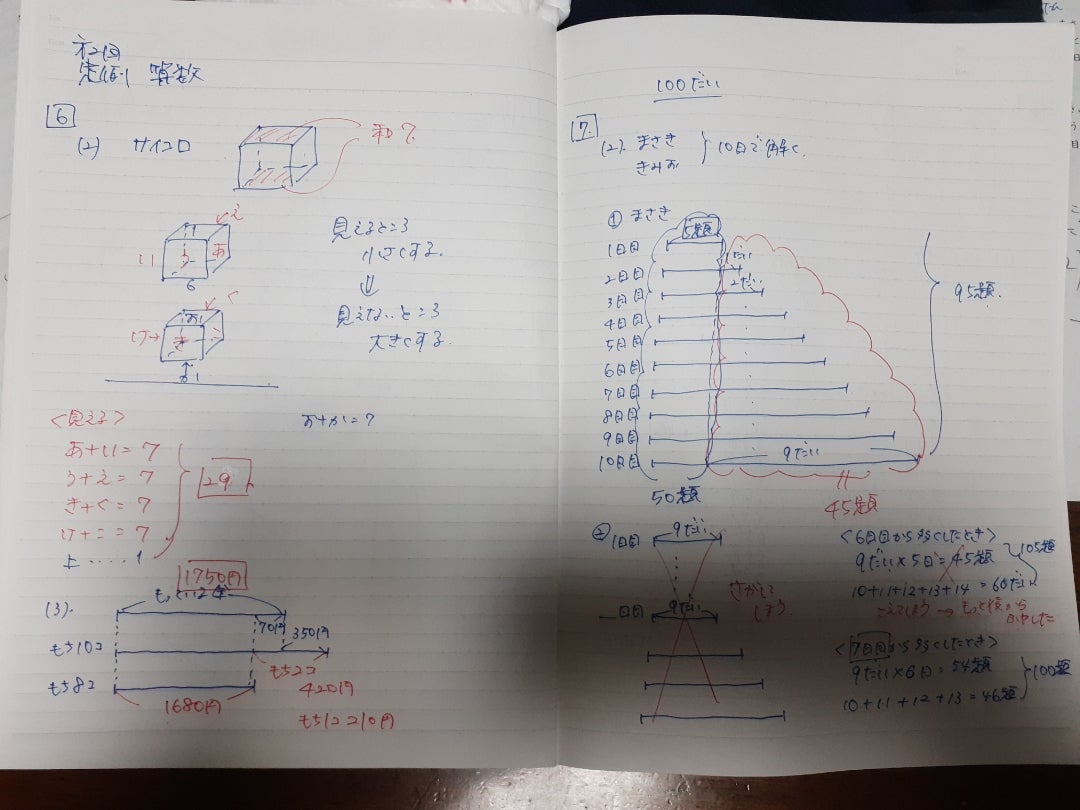 算数
6
(2) サイコロ
和7
え
い
う
あ
6
く
け→
き
こ
見えるところ
小さくする.
⇓
見えないところ
大きくする.
<見える>
お+か=7
あ+い=7
う+え=7
き+く=7
け+こ=7
上.....1
29
1750円
(3).
70円
350円
もち10コ
もち2コ
420円
もち8コ
1680円
もち1コ210円
100だい
7.
(2). まさき
きみお
10日で解く.
① まさき
5題
1日目
2日目
1だい
3日目
2だい
4日目
5日目
6日目
7日目
8日目
9日目
10日目
9だい
95題.
50題
45題
②
1日目
9だい
日目
9だい
さかえて
しまう.
<6日目から多くしたとき>
9だい×5日=45題
10+11+12+13+14=60だい
105題
こえてしまう → もっと後から
<7日目から多くしたとき>
9だい×6日=54題
10+11+12+13=46題
100題